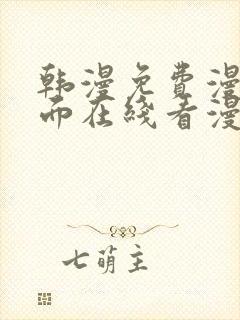 韩漫免费漫
而在线看漫
七萌主